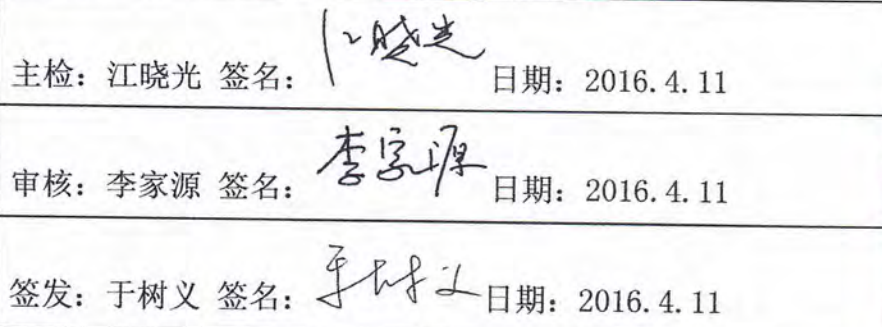 主检：江晓光 签名：江晓光 日期：2016.4.11
审核：李家源 签名：李家源 日期：2016.4.11
签发：于树义 签名：于树义 日期：2016.4.11